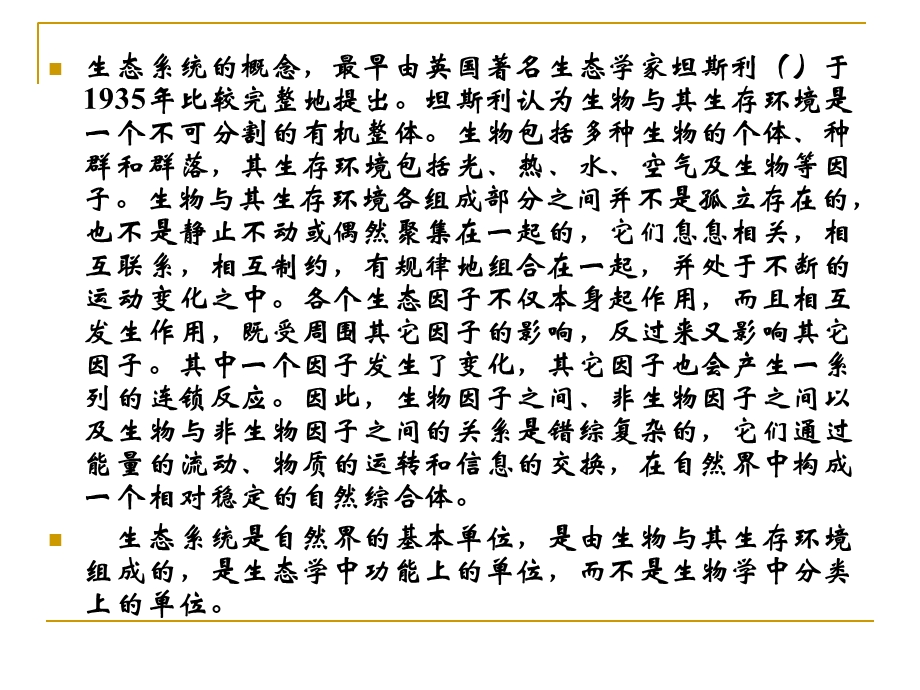 生态系统的概念，最早由英国著名生态学家坦斯利（）于
1935年比较完整地提出。坦斯利认为生物与其生存环境是
一个不可分割的有机整体。生物包括多种生物的个体、种
群和群落，其生存环境包括光、热、水、空气及生物等因
子。生物与其生存环境各组成部分之间并不是孤立存在的，
也不是静止不动或偶然聚集在一起的，它们息息相关，相
互联系，相互制约，有规律地组合在一起，并处于不断的
运动变化之中。各个生态因子不仅本身起作用，而且相互
发生作用，既受周围其它因子的影响，反过来又影响其它
因子。其中一个因子发生了变化，其它因子也会产生一系
列的连锁反应。因此，生物因子之间、非生物因子之间以
及生物与非生物因子之间的关系是错综复杂的，它们通过
能量的流动、物质的运转和信息的交换，在自然界中构成
一个相对稳定的自然综合体。
生态系统是自然界的基本单位，是由生物与其生存环境
组成的，是生态学中功能上的单位，而不是生物学中分类
上的单位。